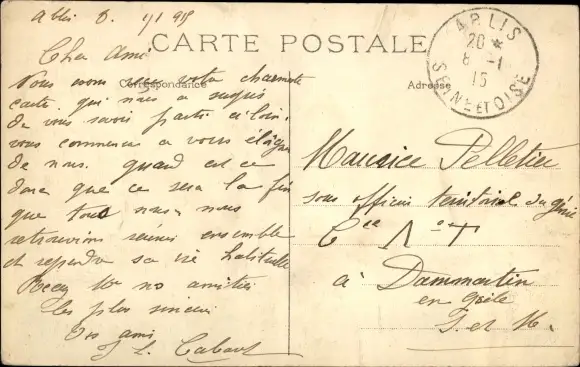 Ablis 8. 1 1915
Cher Ami
CARTE POSTALE
Correspondance
Adresse
ABLIS
20 *
8 -1
15
SEINE ET OISE
Nous avons reçu votre charmante
carte qui nous a surpris
de vous savoir partis si loin,
vous commencez a vous éloigner
de nous. quand est ce
donc que ce sera la fin
que tous nous nous
retrouvions réunis ensemble
et reprendre sa vie habituelle
Recevez nos amitiés
les plus sincères
Vos amis
Cabaut
Maurice Pelletier
sous officier territorial du génie
Cie
à Dammartin
en goële
S. et M.